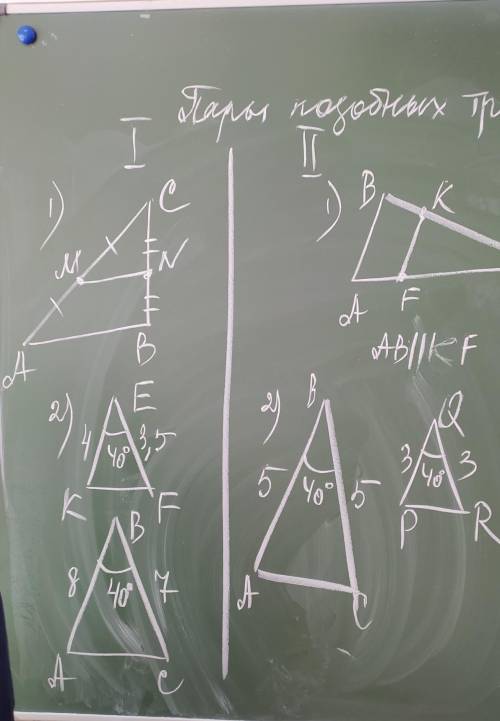 Пары подобных
I
II
1)
C
M
N
A
B
1)
B
K
A
F
AB||KF
2)
E
4
40°
3,5
K
F
B
8
40°
7
A
C
2)
B
5
40°
5
A
C
Q
3
40°
3
P
R